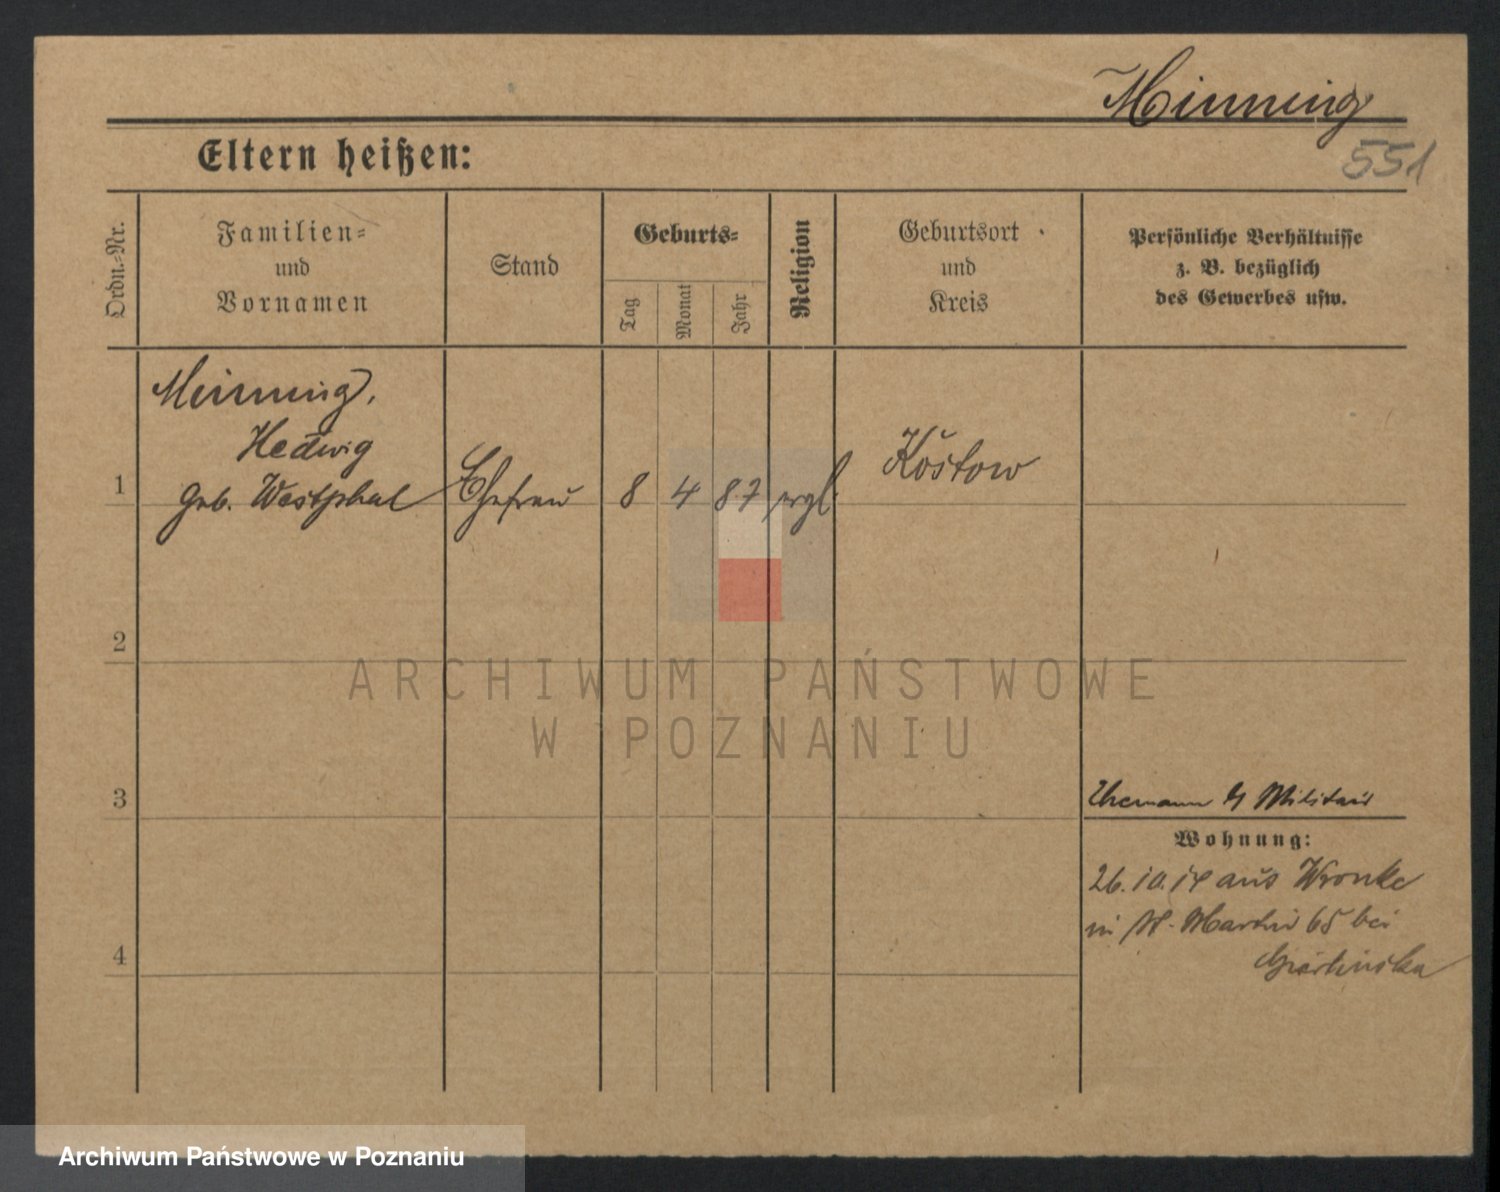 Minning
551
Eltern heißen:
Ordn.-Nr.
Familien-
und
Vornamen
Stand
Geburts-
Tag
Monat
Jahr
Religion
Geburtsort
und
Kreis
Persönliche Verhältnisse
z. B. bezüglich
des Gewerbes usw.
Minning,
Hedwig
geb. Westphal
1
Ehefrau
8
4
87
evgl.
Kostow
2
ARCHIWUM PAŃSTWOWE
W POZNANIU
3
Ehemann Militair
Wohnung:
26.10.14 aus Wronke
in St. Martin 65 bei
4
Archiwum Państwowe w Poznaniu